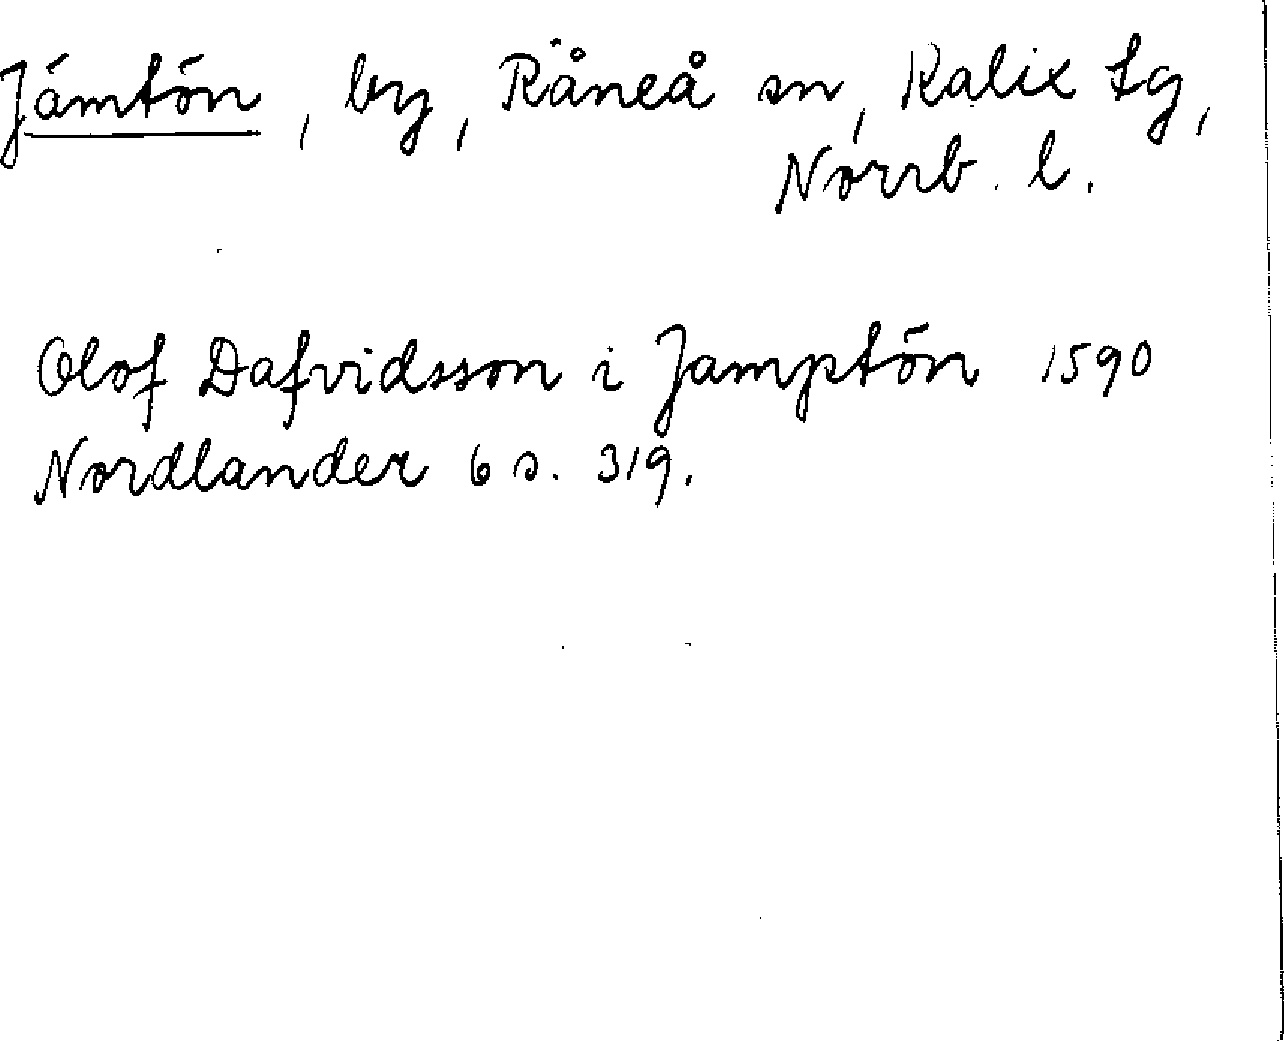 Jämtön, by, Råneå sn, Kalix tg,
Norrb. l.
Olof Dafvidsson i Jamptön 1590
Nordlander 6 s. 319.